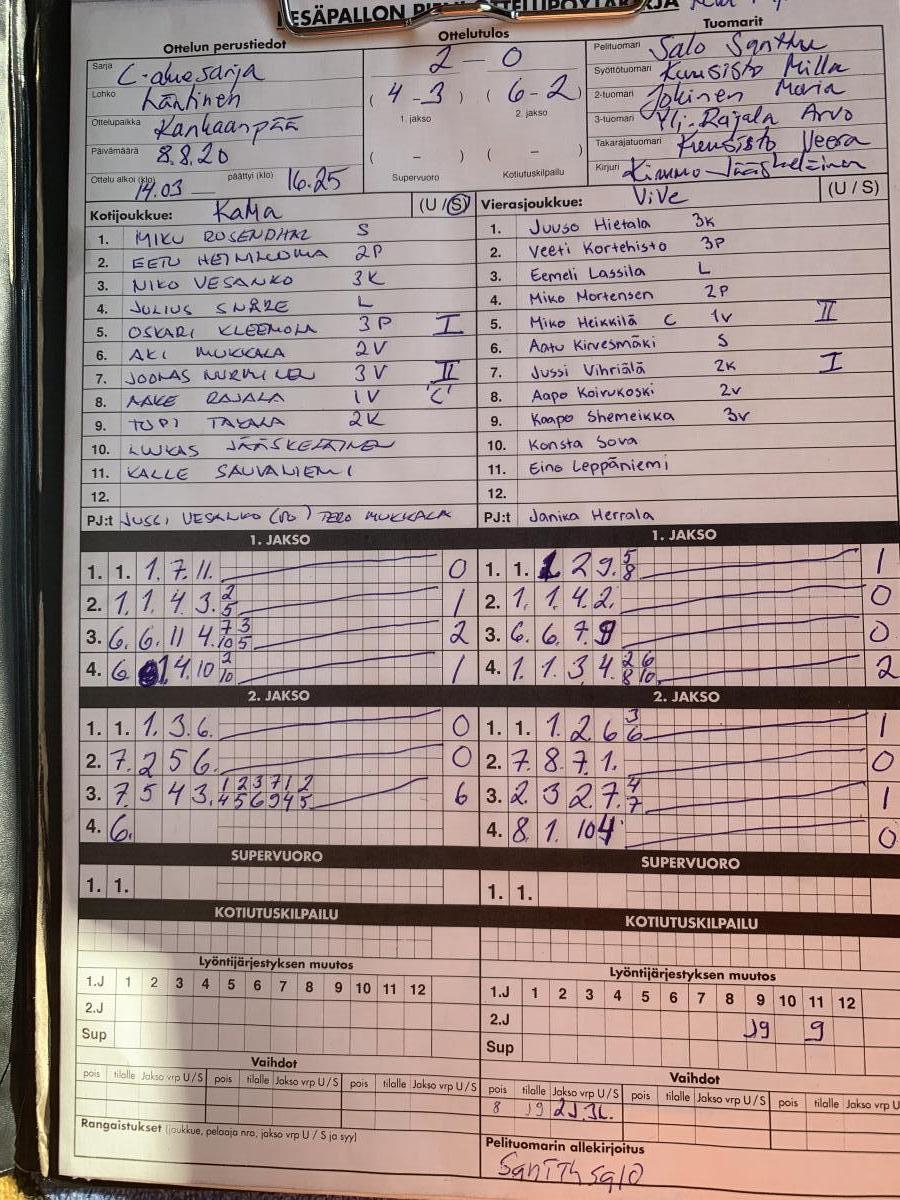 Ottelun perustiedot
Ottelutulos
Tuomarit
Sarja C-aluesarja
Lohko Läntinen
Ottelupaikka Kankaanpää
Päivämäärä 8.8.20
Ottelu alkoi (klo) 14.03 päättyi (klo) 16.25
2 – 0
( 4 - 3 ) ( 6 - 2 )
1. jakso 2. jakso
( - ) ( - )
Supervuoro Kotiutuskilpailu
Pelituomari Salo Santtu
Syöttötuomari Kuusisto Milla
2-tuomari Jokinen Maria
3-tuomari Yli-Rajala Arvo
Takarajatuomari Kuusisto Veera
Kirjuri Kimmo Jääskeläinen
Kotijoukkue: KaMa (U / S)
1. MIKU ROSENDHAL S
2. EETU 2P
3. NIKO VESANKO 3K
4. JULIUS SNÅRE L
5. OSKARI KLEEMOLA 3P I
6. AKI MUKKALA 2V
7. JOONAS NURMINEN 3V II
8. AAKE RAJALA 1V 'C'
9. TOPI TAKALA 2K
10. LUUKAS JÄÄSKELÄINEN
11. KALLE SAUVANIEMI
12.
PJ:t JUSSI VESANKO TERO MUKKALA
Vierasjoukkue: ViVe (U / S)
1. Juuso Hietala 3K
2. Veeti Kortehisto 3P
3. Eemeli Lassila L
4. Miko Mortensen 2P
5. Miko Heikkilä C 1V II
6. Aatu Kirvesmäki S
7. Jussi Vihriälä 2K I
8. Aapo Koivukoski 2V
9. Kaapo Shemeikka 3V
10. Konsta Sova
11. Eino Leppäniemi
12.
PJ:t Janika Herrala
1. JAKSO
1. 1. 1. 7. 11. 0
2. 1. 1. 4 3. 2 5 1
3. 6. 6. 11 4. 7 3 10 5 2
4. 6 1. 4. 10 2 10 1
1. JAKSO
1. 1. 1 2 9. 5 8 1
2. 1. 1. 4 2. 0
3. 6. 6. 7. 9 0
4. 1. 1. 3 4. 2 6 8 10. 2
2. JAKSO
1. 1. 1. 3. 6. 0
2. 7. 2 5 6. 0
3. 7. 5 4 3. 1 2 3 7 1 2 4 5 6 9 4 5 6
4. 6.
2. JAKSO
1. 1. 1. 2. 6 3 6 1
2. 7. 8. 7 1. 0
3. 2. 3 2 7. 4 7 1
4. 8. 1. 10 4 0
SUPERVUORO
1. 1.
SUPERVUORO
1. 1.
KOTIUTUSKILPAILU
KOTIUTUSKILPAILU
Lyöntijärjestyksen muutos
1.J 1 2 3 4 5 6 7 8 9 10 11 12
2.J
Sup
Lyöntijärjestyksen muutos
1.J 1 2 3 4 5 6 7 8 9 10 11 12
2.J J9 9
Sup
Vaihdot
pois tilalle Jakso vrp U / S pois tilalle Jakso vrp U / S pois tilalle Jakso vrp U / S
Vaihdot
pois tilalle Jakso vrp U / S pois tilalle Jakso vrp U / S pois tilalle Jakso vrp U
8 J9 2J3L.
Rangaistukset (joukkue, pelaaja nro, jakso vrp U / S ja syy)
Pelituomarin allekirjoitus
Santtu Salo